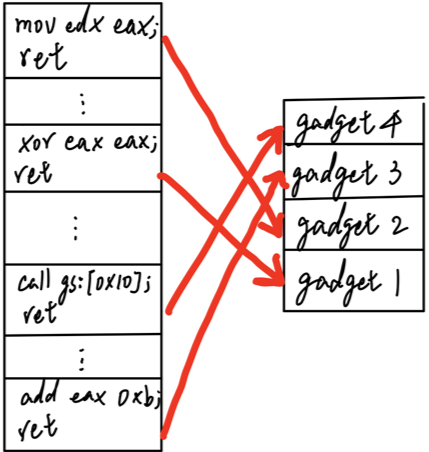 mov edx eax;
ret
⋮
xor eax eax;
ret
⋮
call gs:[0x10];
ret
⋮
add eax 0xb;
ret
gadget 4
gadget 3
gadget 2
gadget 1